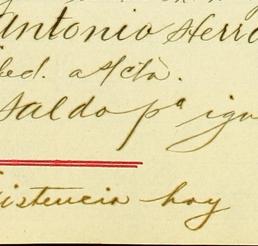 Antonio Herr
ped. a Cta.
Saldo pª igu
istencia hoy